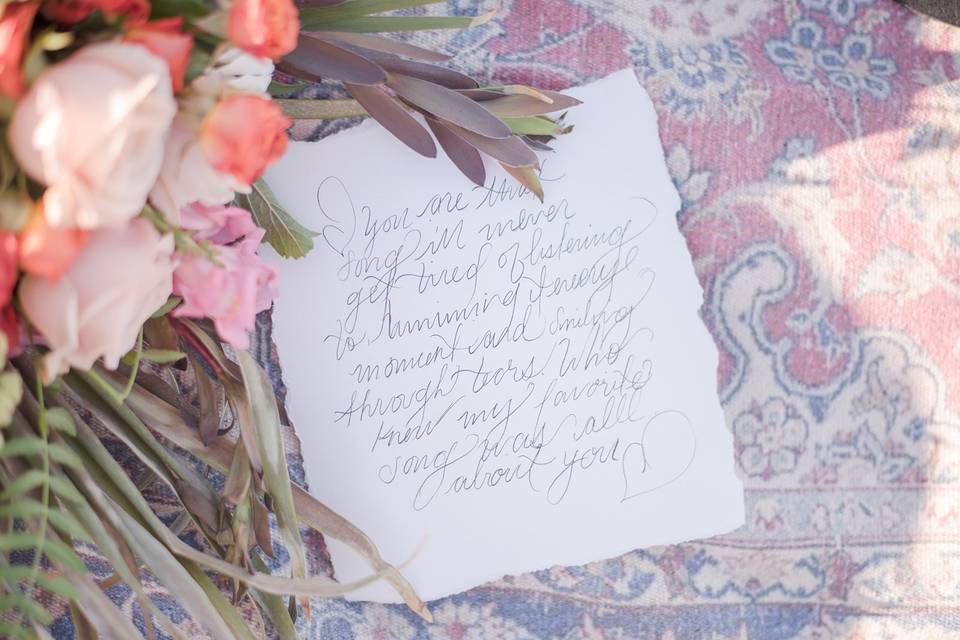 You are that
song ill never
get tired of listening
to, humming it every
moment and smiling
through tears. Who
knew my favorite
song was all
about you